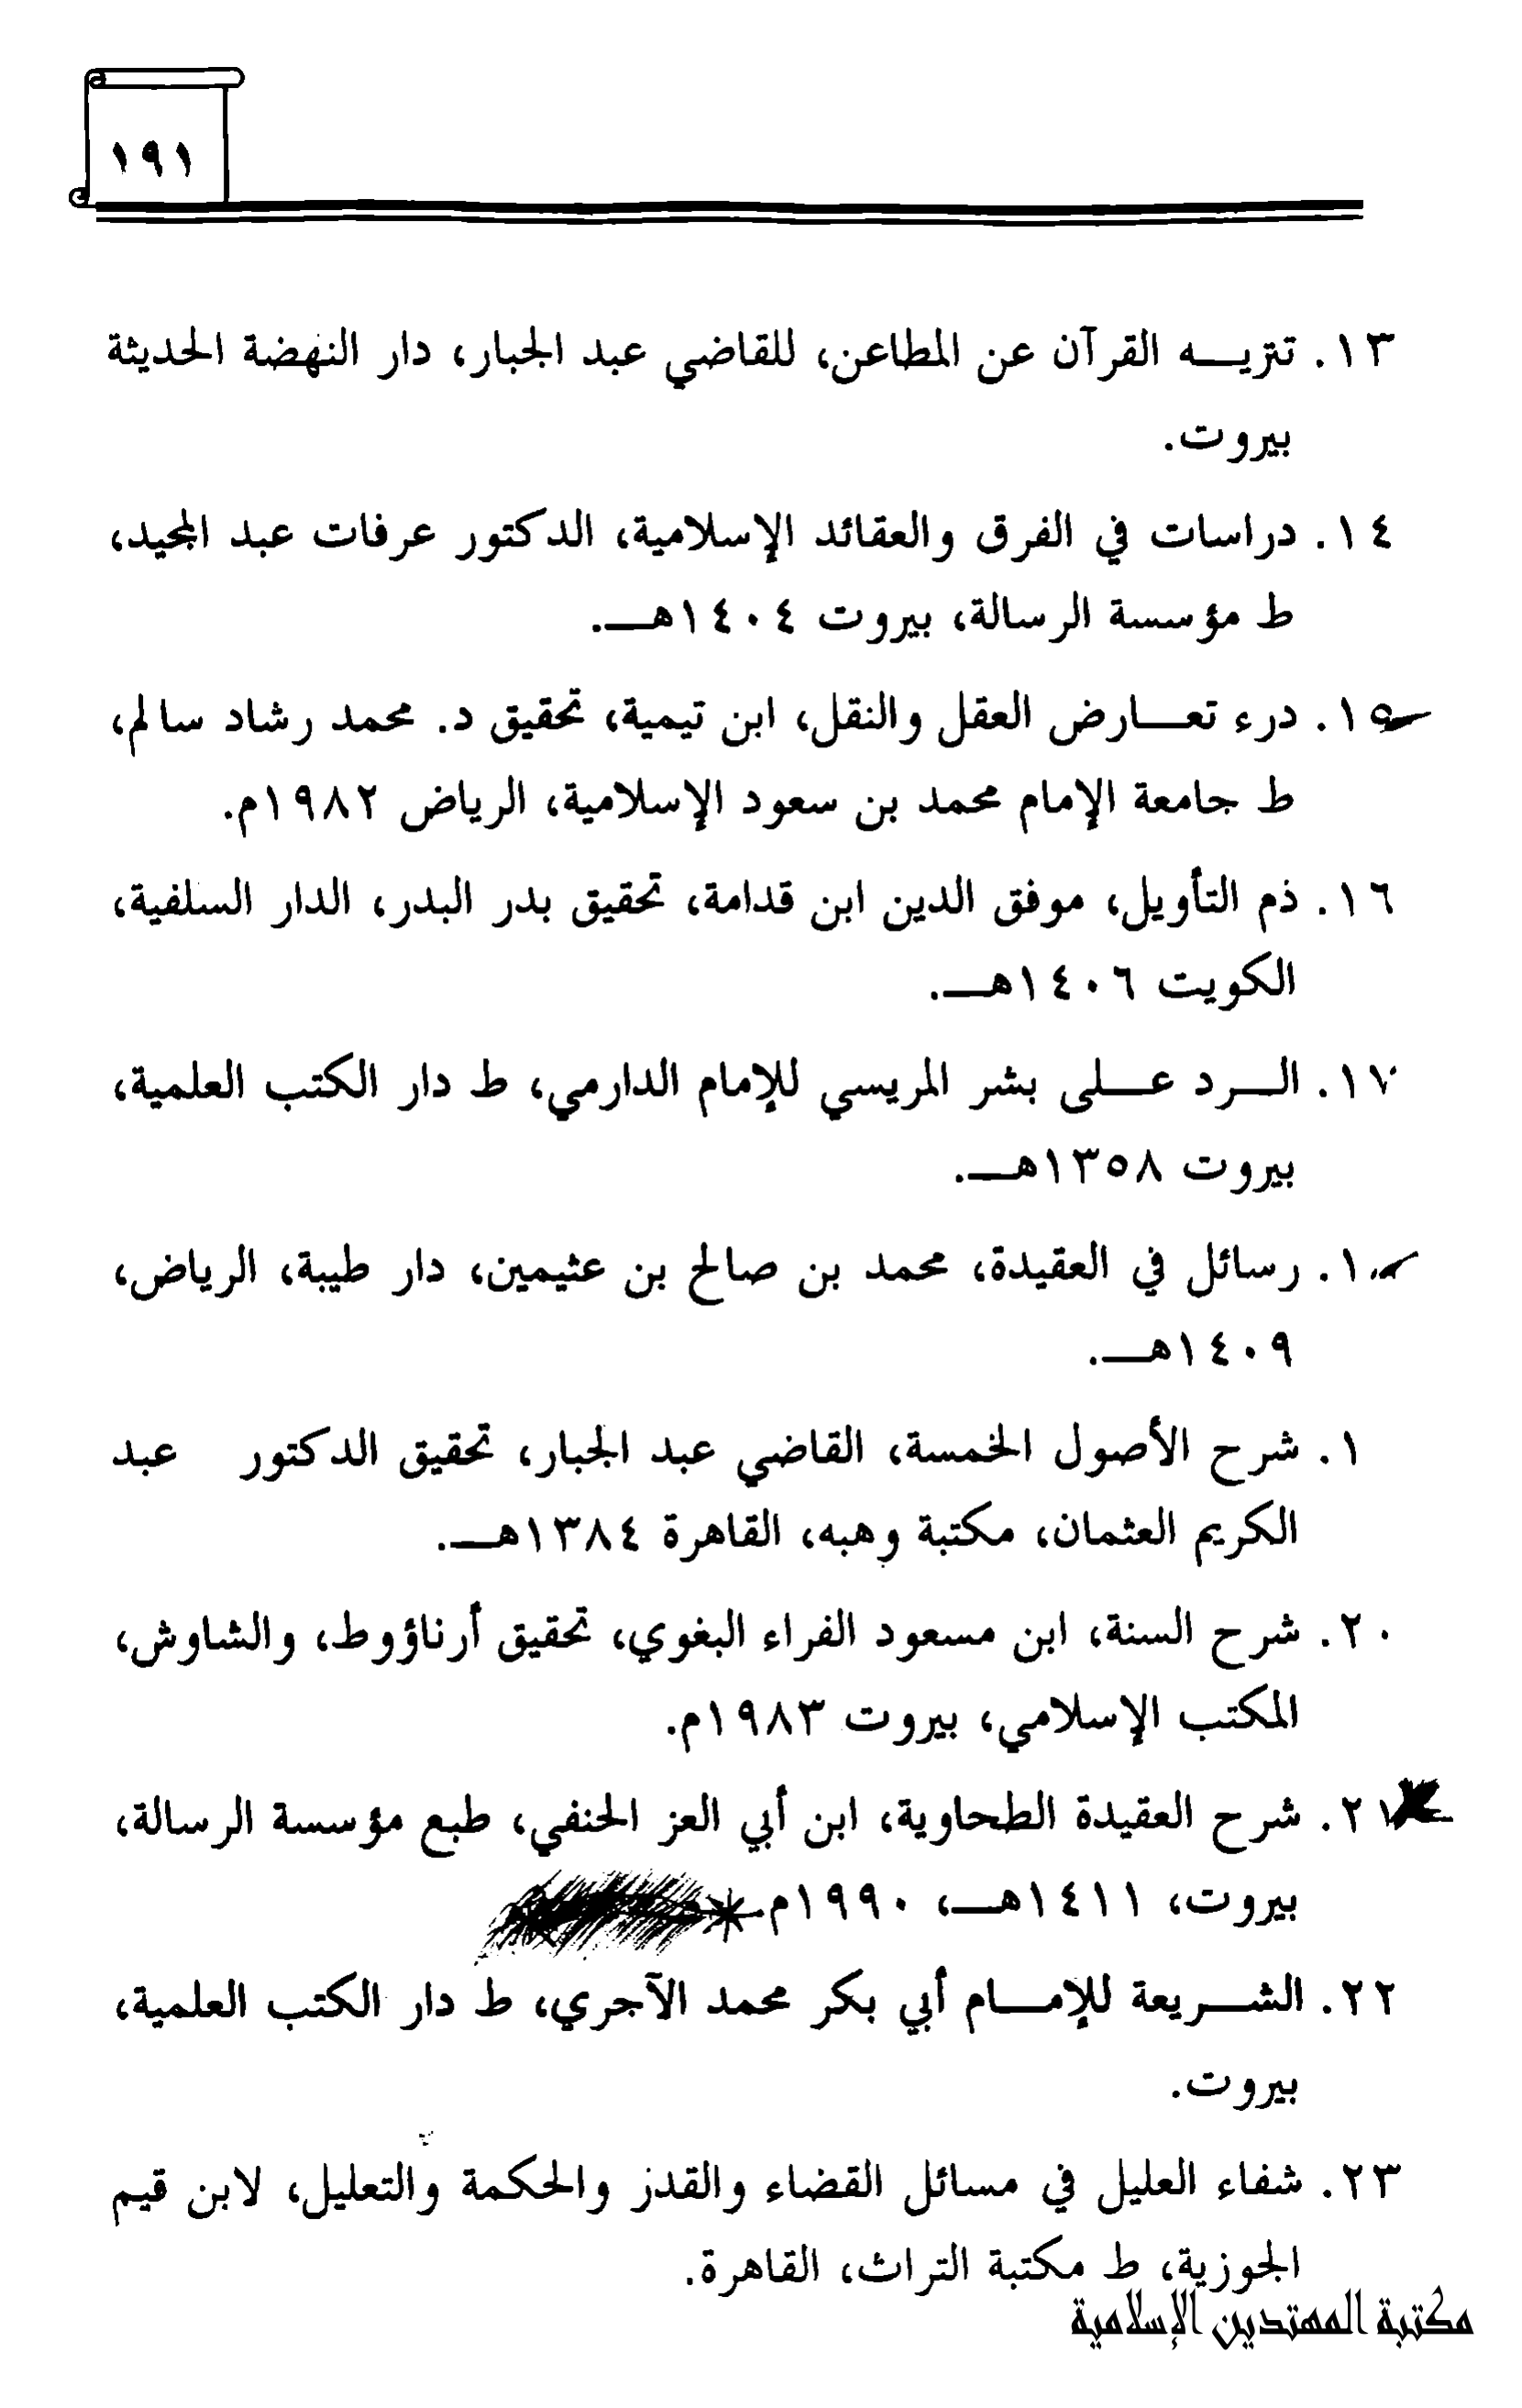 ١٩١
١٣. تنزيه القرآن عن المطاعن، للقاضي عبد الجبار، دار النهضة الحديثة
بيروت.
١٤. دراسات في الفرق والعقائد الإسلامية، الدكتور عرفات عبد المجيد،
ط مؤسسة الرسالة، بيروت ١٤٠٤هـ.
١٥. درء تعارض العقل والنقل، ابن تيمية، تحقيق د. محمد رشاد سالم،
ط جامعة الإمام محمد بن سعود الإسلامية، الرياض ١٩٨٢م.
١٦. ذم التأويل، موفق الدين ابن قدامة، تحقيق بدر البدر، الدار السلفية،
الكويت ١٤٠٦هـ.
١٧. الرد على بشر المريسي للإمام الدارمي، ط دار الكتب العلمية،
بيروت ١٣٥٨هـ.
١. رسائل في العقيدة، محمد بن صالح بن عثيمين، دار طيبة، الرياض،
١٤٠٩هـ.
١. شرح الأصول الخمسة، القاضي عبد الجبار، تحقيق الدكتور عبد
الكريم العثمان، مكتبة وهبه، القاهرة ١٣٨٤هـ.
٢٠. شرح السنة، ابن مسعود الفراء البغوي، تحقيق أرناؤوط، والشاوش،
المكتب الإسلامي، بيروت ١٩٨٣م.
٢١. شرح العقيدة الطحاوية، ابن أبي العز الحنفي، طبع مؤسسة الرسالة،
بيروت، ١٤١١هـ، ١٩٩٠م.
٢٢. الشريعة للإمام أبي بكر محمد الآجري، ط دار الكتب العلمية،
بيروت.
٢٣. شفاء العليل في مسائل القضاء والقدر والحكمة والتعليل، لابن قيم
الجوزية، ط مكتبة التراث، القاهرة.
مكتبة المهتدين الإسلامية